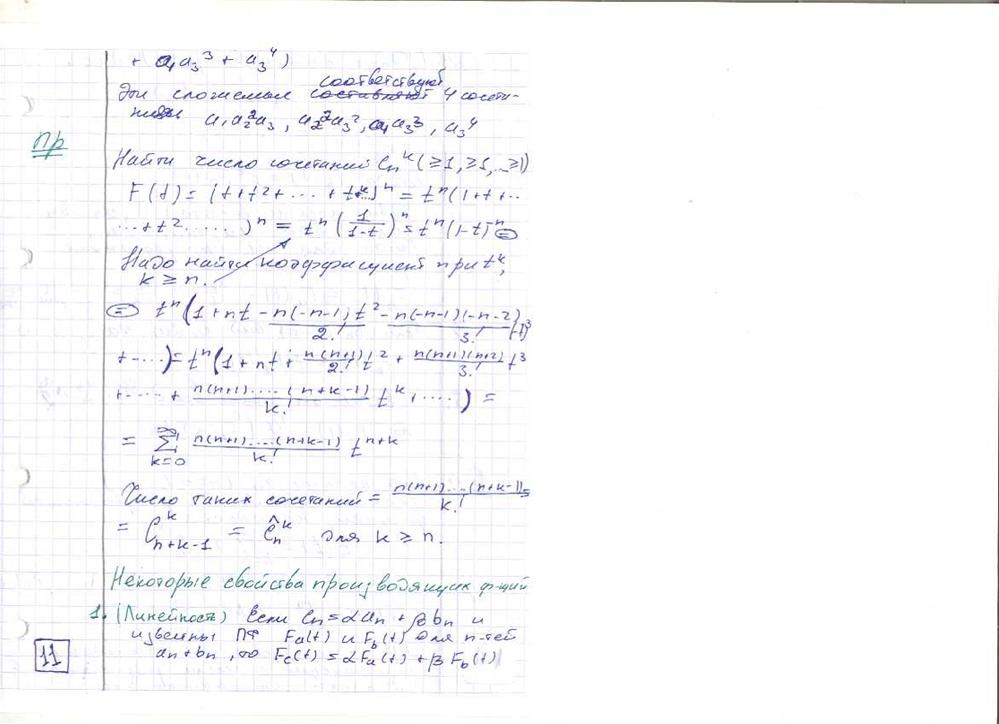 + a₁a₃³ + a₃⁴)
соответствуют
Эти слагаемые составляют 4 сочета-
ния a₁a₂²a₃, a₂²a₃², a₁a₃³, a₃⁴
Пр
Найти число сочетаний Cₙᵏ (≥1, ≥1, ..≥1)
F(t) = (t+t²+ ... + tᵏ..)ⁿ = tⁿ(1+t+..
..+t²......)ⁿ = tⁿ(1/(1-t))ⁿ = tⁿ(1-t)⁻ⁿ ⊜
Надо найти коэффициент при tᵏ,
k ≥ n.
⊜ tⁿ(1+nt - n(-n-1)/2! t² - n(-n-1)(-n-2)/3! (-t)³
+....) = tⁿ(1+nt + n(n+1)/2! t² + n(n+1)(n+2)/3! t³
+....+ n(n+1)....(n+k-1)/k! tᵏ, ....) =
= ∞Σk=0 n(n+1)....(n+k-1)/k! tⁿ⁺ᵏ
Число таких сочетаний = n(n+1)...(n+k-1)/k! =
= Cᵏₙ₊ₖ₋₁ = Ĉₙᵏ для k ≥ n.
Некоторые свойства производящих ф-ций
1. (Линейность) Если Cₙ = αaₙ + βbₙ и
известны ПФ Fₐ(t) и F_b(t) для п-тей
aₙ + bₙ, то F_c(t) = αFₐ(t) + βF_b(t)
11